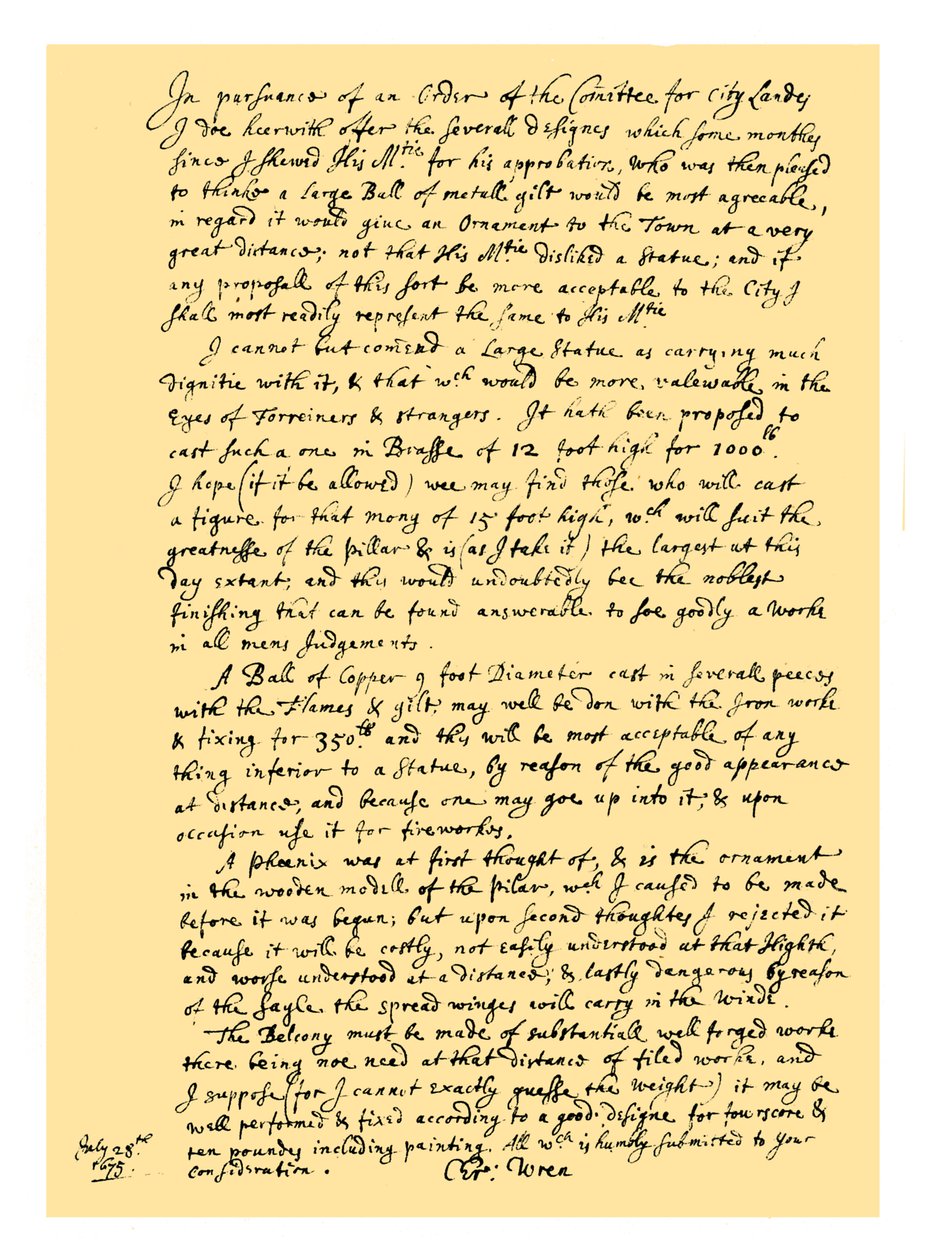 In pursuance of an Order of the Comittee for City Landes
I doe heerwith offer the severall designes which some monthes
since I shewed His M.tie for his approbation, who was then pleased
to thinke a large Ball of metall gilt would be most agreeable,
in regard it would give an Ornament to the Town at a very
great distance; not that His M.tie disliked a Statue; and if
any proposall of this sort be more acceptable to the City I
shall most readily represent the same to His M.tie
I cannot but com̄end a Large Statue as carrying much
dignitie with it, & that wch would be more valewable in the
Eyes of Forreiners & strangers. It hath been proposed to
cast such a one in Brasse of 12 foot high for 1000lb.
I hope (if it be allowed) wee may find those who will cast
a figure for that mony of 15 foot high, wch will suit the
greatnesse of the pillar & is (as I take it) the largest at this
day extant; and this would undoubtedly bee the noblest
finishing that can be found answerable to soe goodly a worke
in all mens Judgements.
A Ball of Copper 9 foot Diameter cast in severall peeces
with the Flames & gilt, may well be don with the Iron worke
& fixing for 350.lb and this will be most acceptable of any
thing inferior to a Statue, by reason of the good appearance
at distance, and because one may goe up into it, & upon
occasion use it for fireworkes.
A phœnix was at first thought of, & is the ornament
in the wooden modell of the pilar, wch I caused to be made
before it was begun; but upon second thoughtes I rejected it
because it will be costly, not easily understood at that Highth,
and worse understood at a distance; & lastly dangerous by reason
of the sayle the spread winges will carry in the winde.
The Belcony must be made of substantiall well forged worke
there being noe need at that distance of filed worke, and
I suppose (for I cannot exactly guesse the weight) it may be
well performed & fixed according to a good designe for fourscore &
ten poundes including painting. All wch is humbly submitted to your
consideration.
Chr: Wren
July 28th
1675.